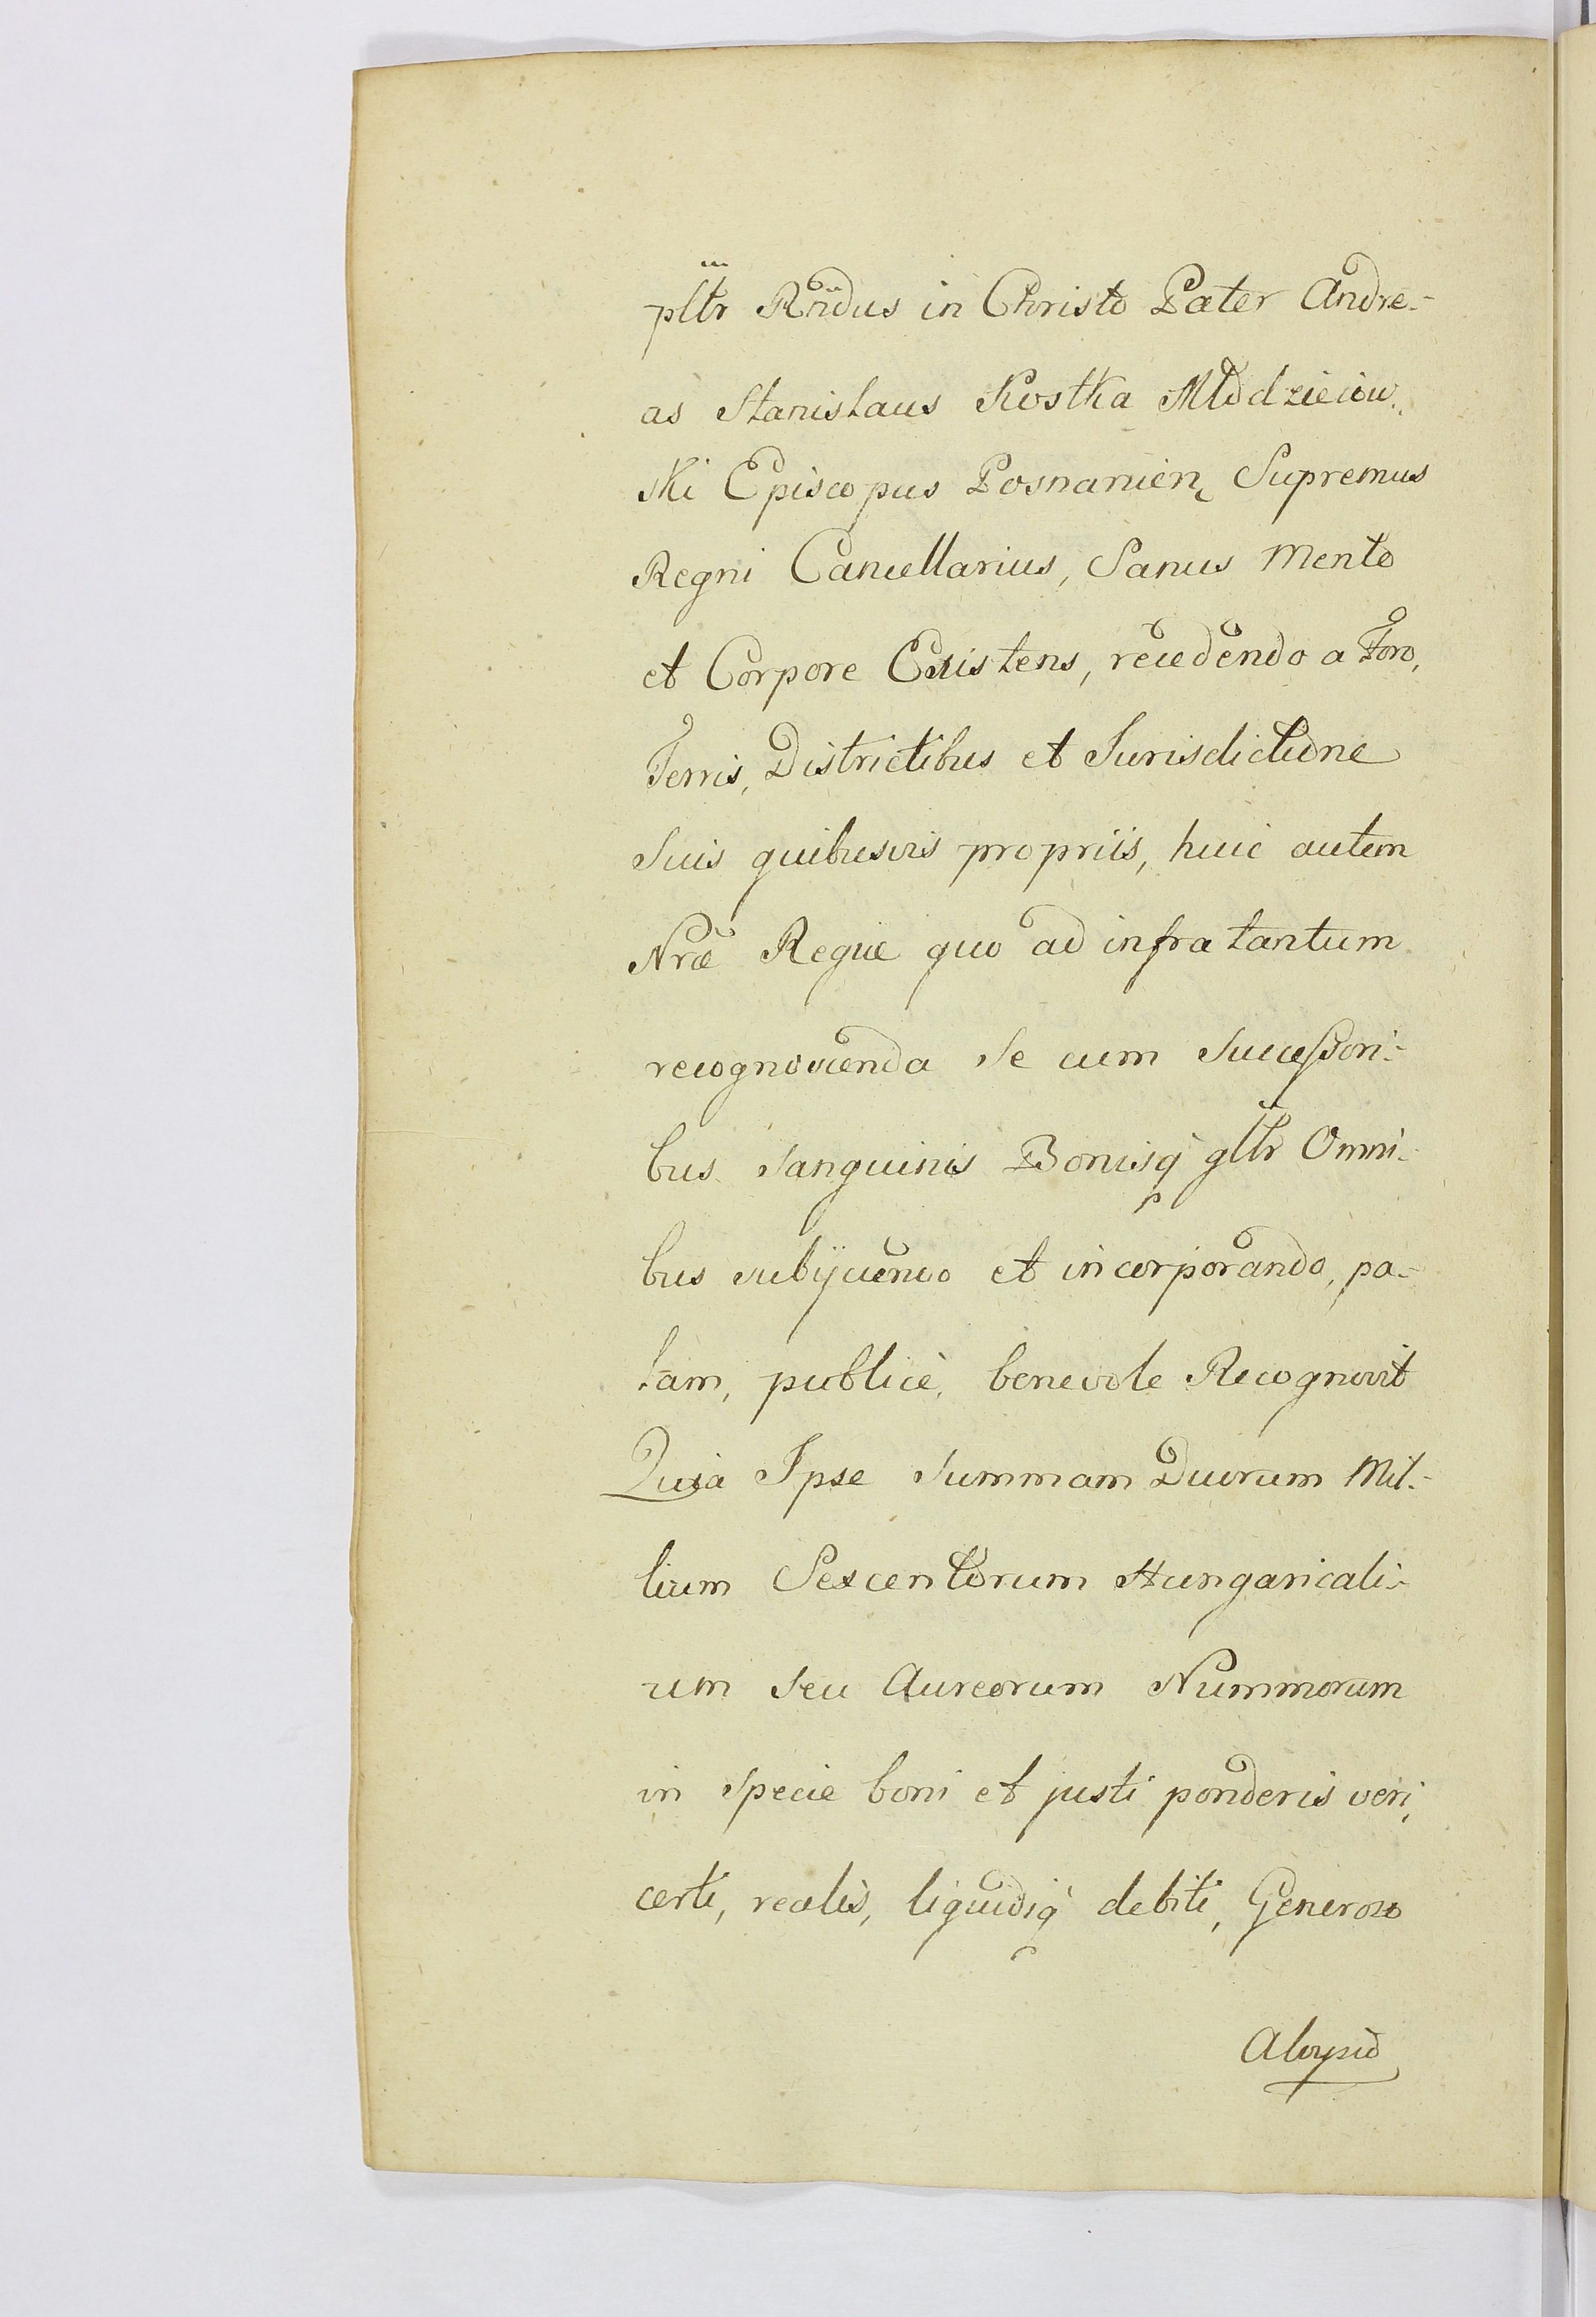 plltr Rñdus in Christo Pater Andre-
as Stanislaus Kostka Młodzieiow-
ski Episcopus Posnanien, Supremus
Regni Cancellarius, Sanus Mente
et Corpore Existens, recedendo a Foro,
Terris, Districtibus et Jurisdictione
Suis quibusvis propriis, huic autem
Nrae Regiae quo ad infra tantum
recognoscenda Se cum Successori-
bus Sanguinis Bonisq gltr Omni-
bus subijciendo et incorporando, pa-
lam, publicè, benevole Recognovit
Quia Ipse Summam Duorum Mil-
lium Sexcentorum Hungaricali-
um seu Aureorum Nummorum
in specie boni et justi ponderis veri,
certi, realis, liquidiq debiti, Generoso
Aloysio